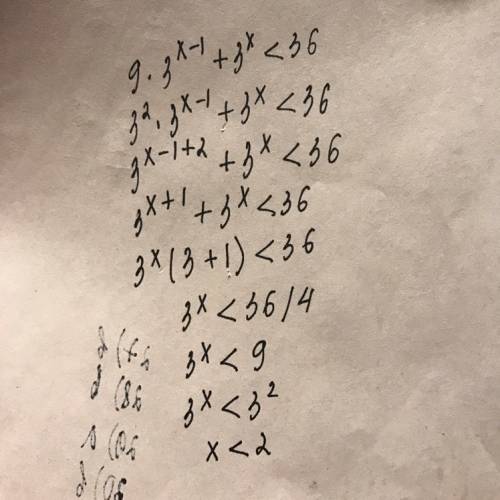 9·3^{x-1}+3^x<36
3^2·3^{x-1}+3^x<36
3^{x-1+2}+3^x<36
3^{x+1}+3^x<36
3^x(3+1)<36
3^x<36/4
3^x<9
3^x<3^2
x<2